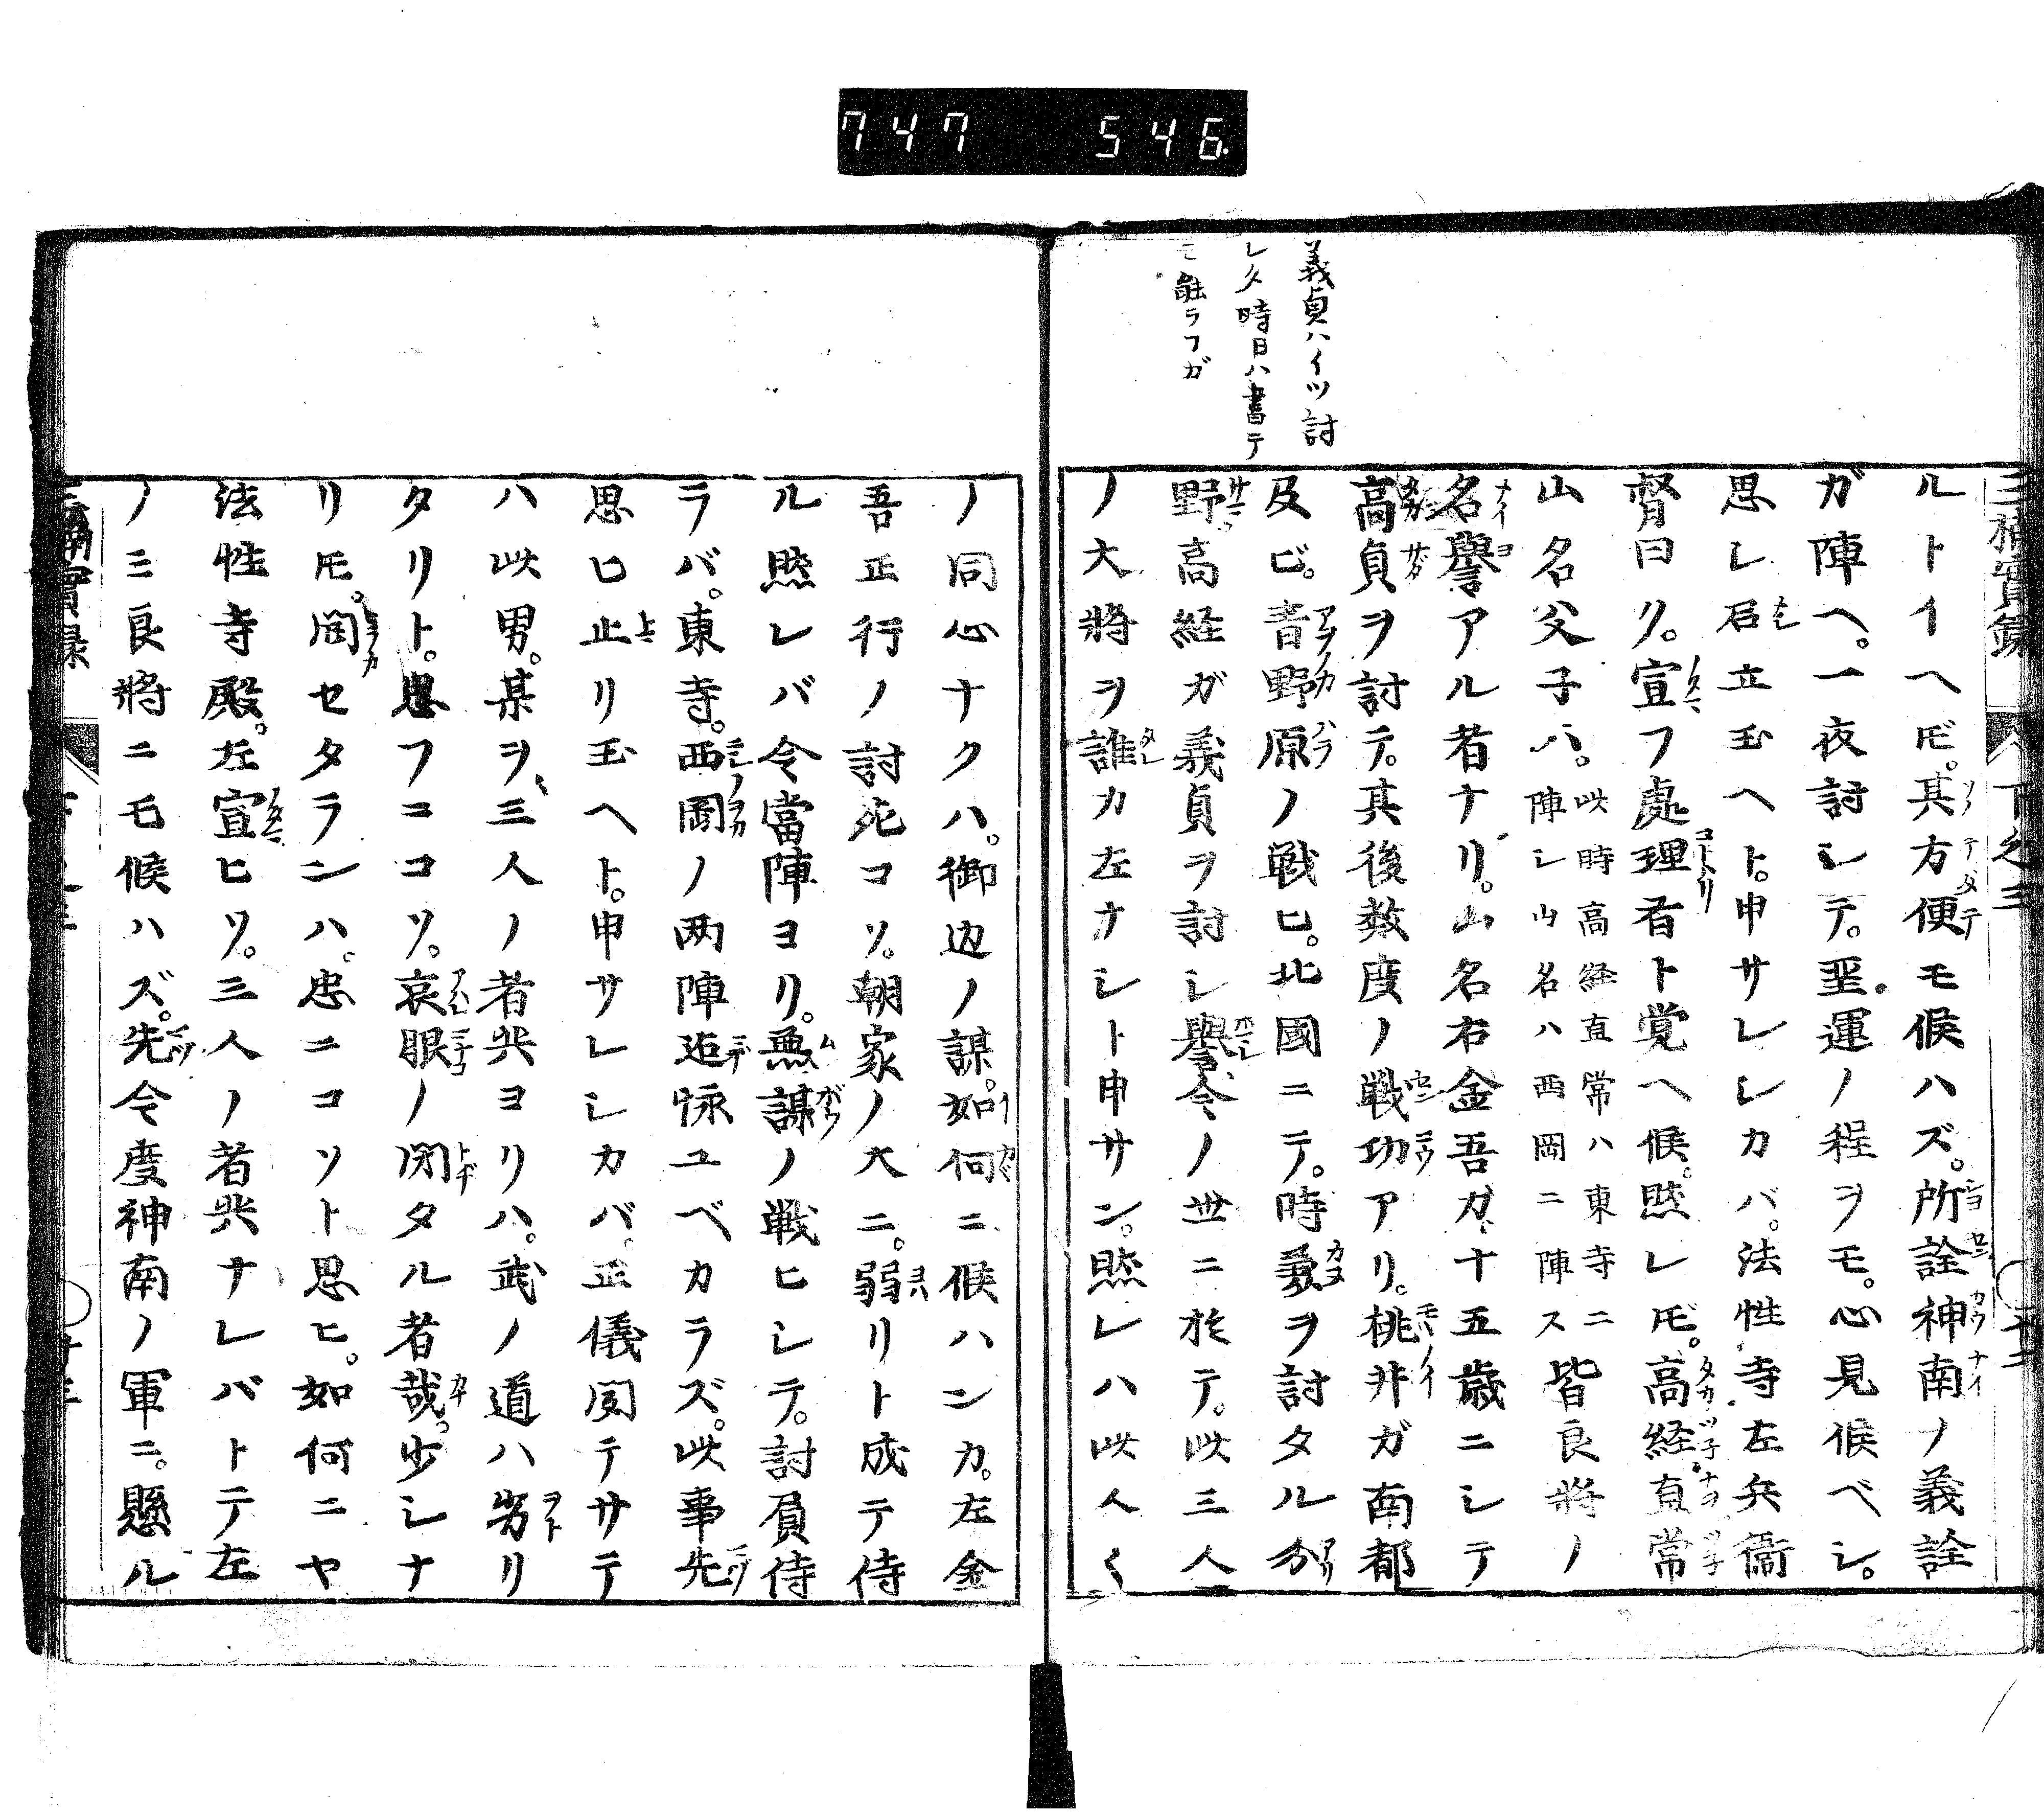 747 546
義貞ハイツ討
レタ時日ハ書テ
三楠實録 下之三
ルトイヘ𪜈。其方便モ候ハズ。所詮神南ノ義詮
ガ陣ヘ。一夜討シテ。聖運ノ程ヲモ。心見候ベシ。
思シ召立玉ヘト。申サレシカバ。法性寺左兵衞
督曰ク。宣フ處理有ト覚ヘ候。然レ𪜈。高経直常
山名父子ハ。此時高経直常ハ東寺ニ陣シ山名ハ西岡ニ陣ス皆良將ノ
名譽アル者ナリ。山名右金吾ガ、十五歳ニシテ
高貞ヲ討テ。其後数度ノ戦功アリ。桃井ガ南都
及ビ。青野原ノ戦ヒ。北國ニテ。時兼ヲ討タル分野
高経ガ義貞ヲ討シ譽、今ノ世ニ於テ。此三人
ノ大將ヲ誰カ左ナシト申サン。然レハ此人〱
ノ同心ナクハ。御边ノ謀。如何ニ候ハンカ。左金
吾正行ノ討死コソ。朝家ノ大ニ。弱リト成テ侍
ル然レバ今當陣ヨリ。無謀ノ戦ヒシテ。討負侍
ラバ。東寺。西岡ノ两陣迄怺ユベカラズ。此事先
思ヒ止リ玉ヘト。申サレシカバ。正儀聞テサテ
ハ此男。某ヲ、三人ノ者共ヨリハ。武ノ道ハ劣リ
タリト。思フコソ。哀眼ノ閉タル者哉。少シナ
リ𪜈。聞セタランハ。忠ニコソト思ヒ。如何ニヤ
法性寺殿。左宣ヒソ。三人ノ者共ナレバトテ左
ノミ良將ニモ候ハズ。先今度神南ノ軍ニ。懸ル